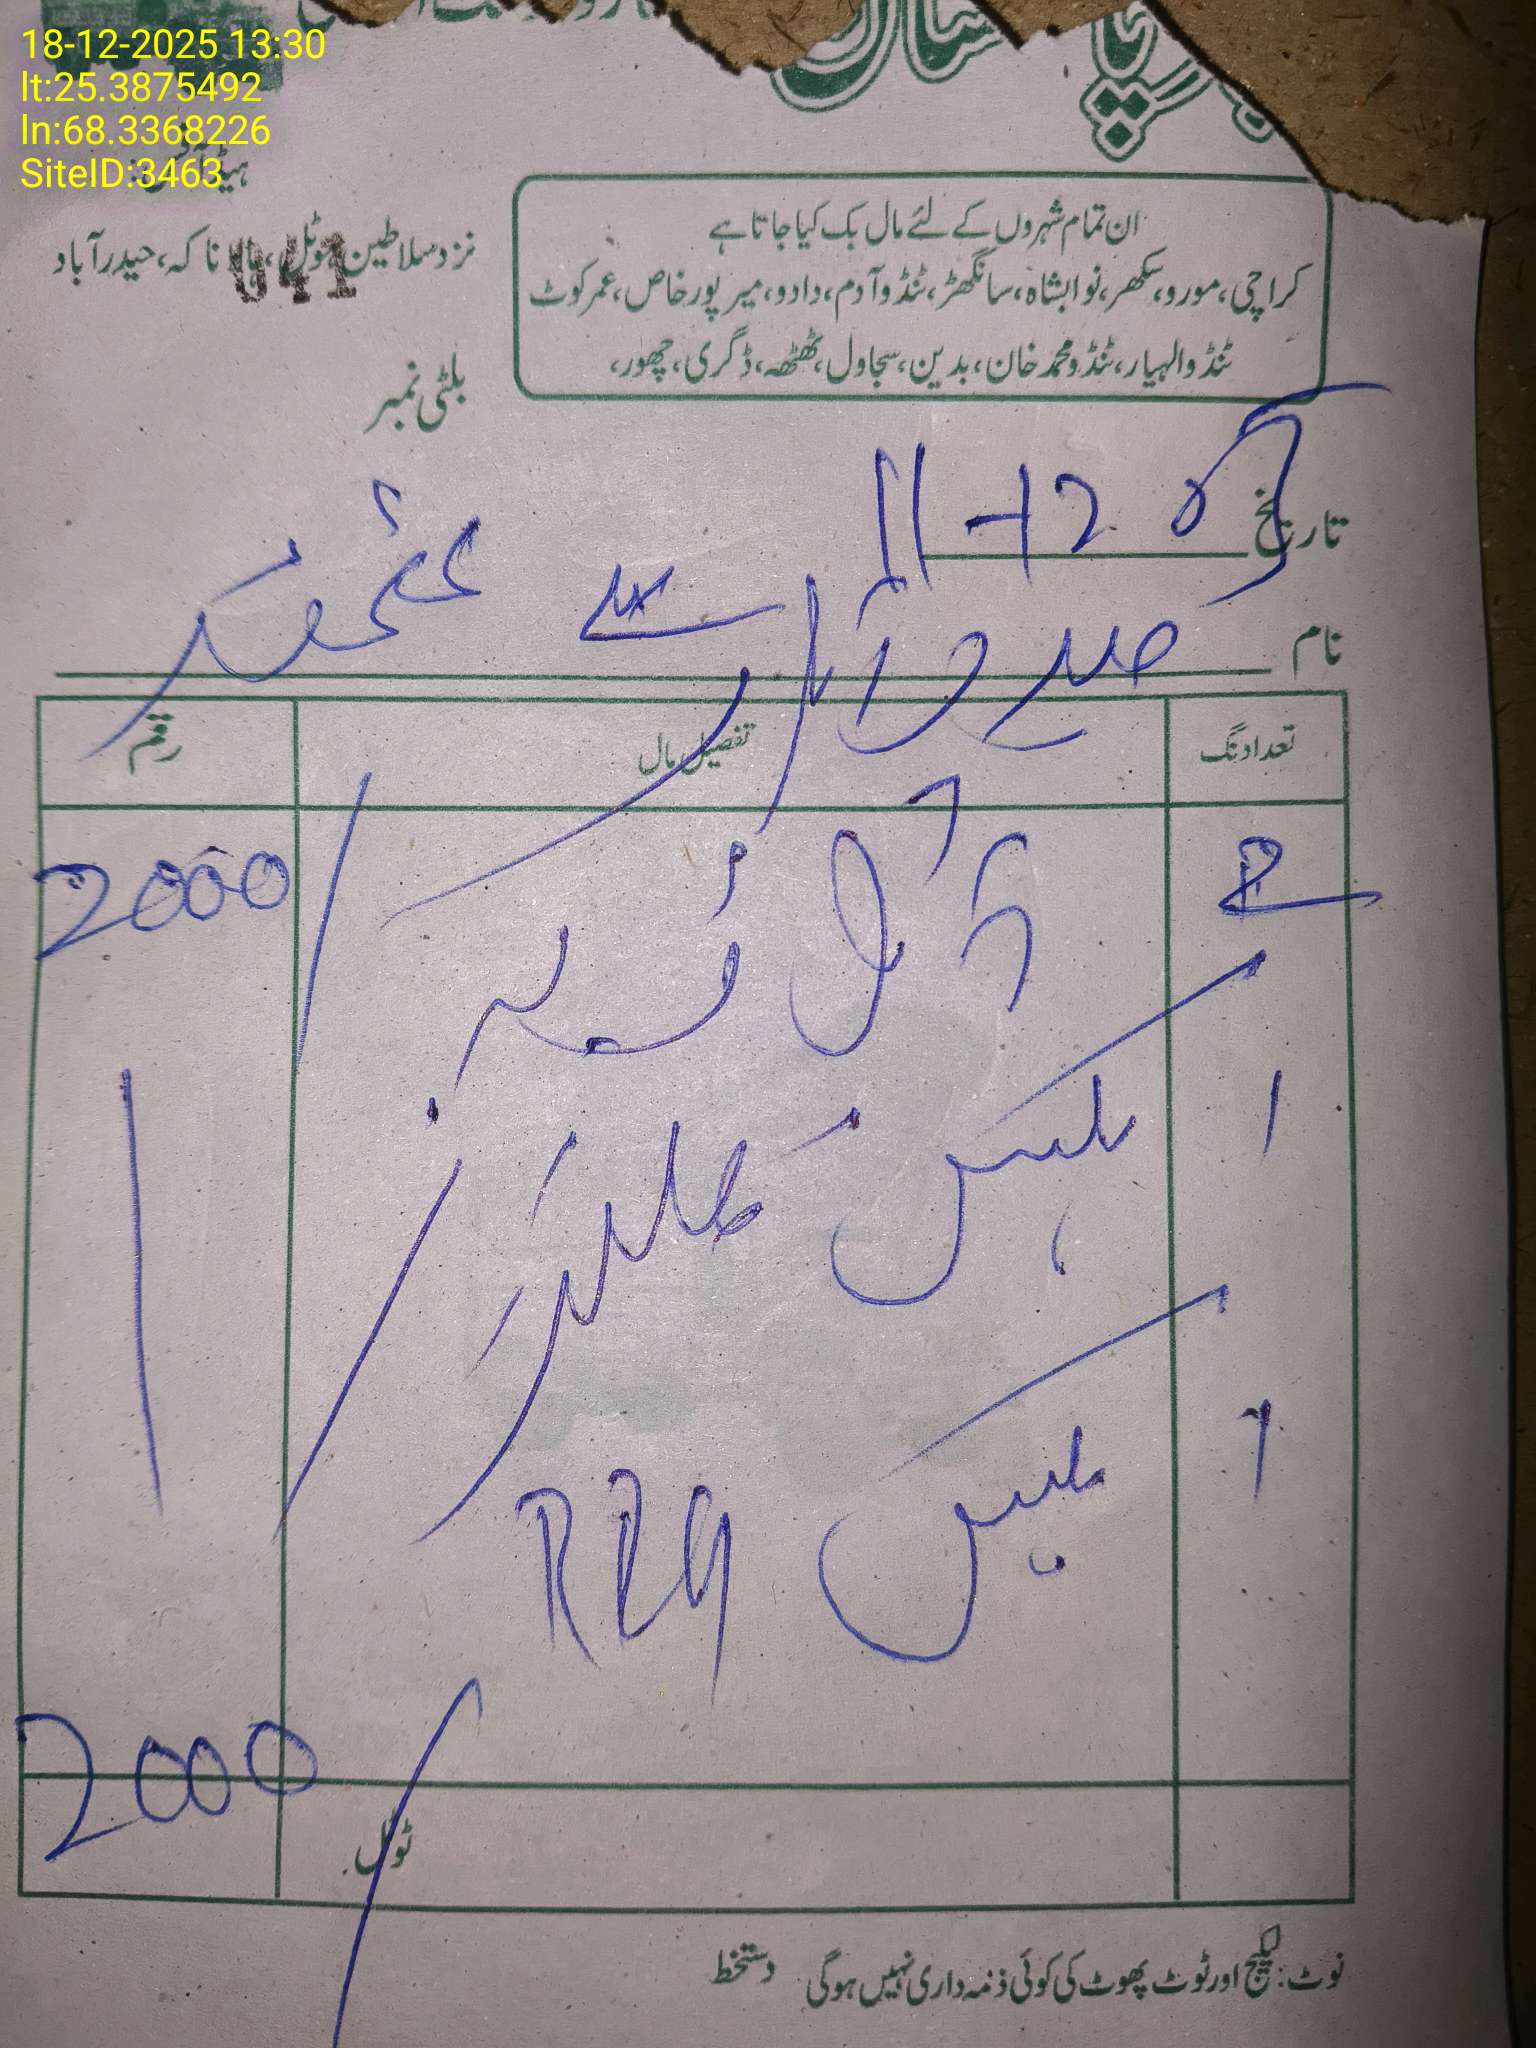 18-12-2025 13:30
lt:25.3875492
ln:68.3368226
SiteID:3463
ان تمام شہروں کے لئے مال بک کیا جاتا ہے
کراچی، مورو، سکھر، نوابشاہ، سانگھڑ، ٹنڈوآدم، دادو، میرپورخاص، عمرکوٹ
ٹنڈوالہیار، ٹنڈومحمدخان، بدین، سجاول، ٹھٹھہ، ڈگری، چھور،
نزد سلاطین ہوٹل، ناکہ، حیدرآباد
041
بلٹی نمبر
تاریخ 11-12
نام حیدرآباد سے
تعداد نگ تفصیل مال رقم
2 آئل 2000/
1 بکس فلٹر
1 بکس
ٹوٹل 2000/
نوٹ: لیکیج اور ٹوٹ پھوٹ کی کوئی ذمہ داری نہیں ہوگی دستخط